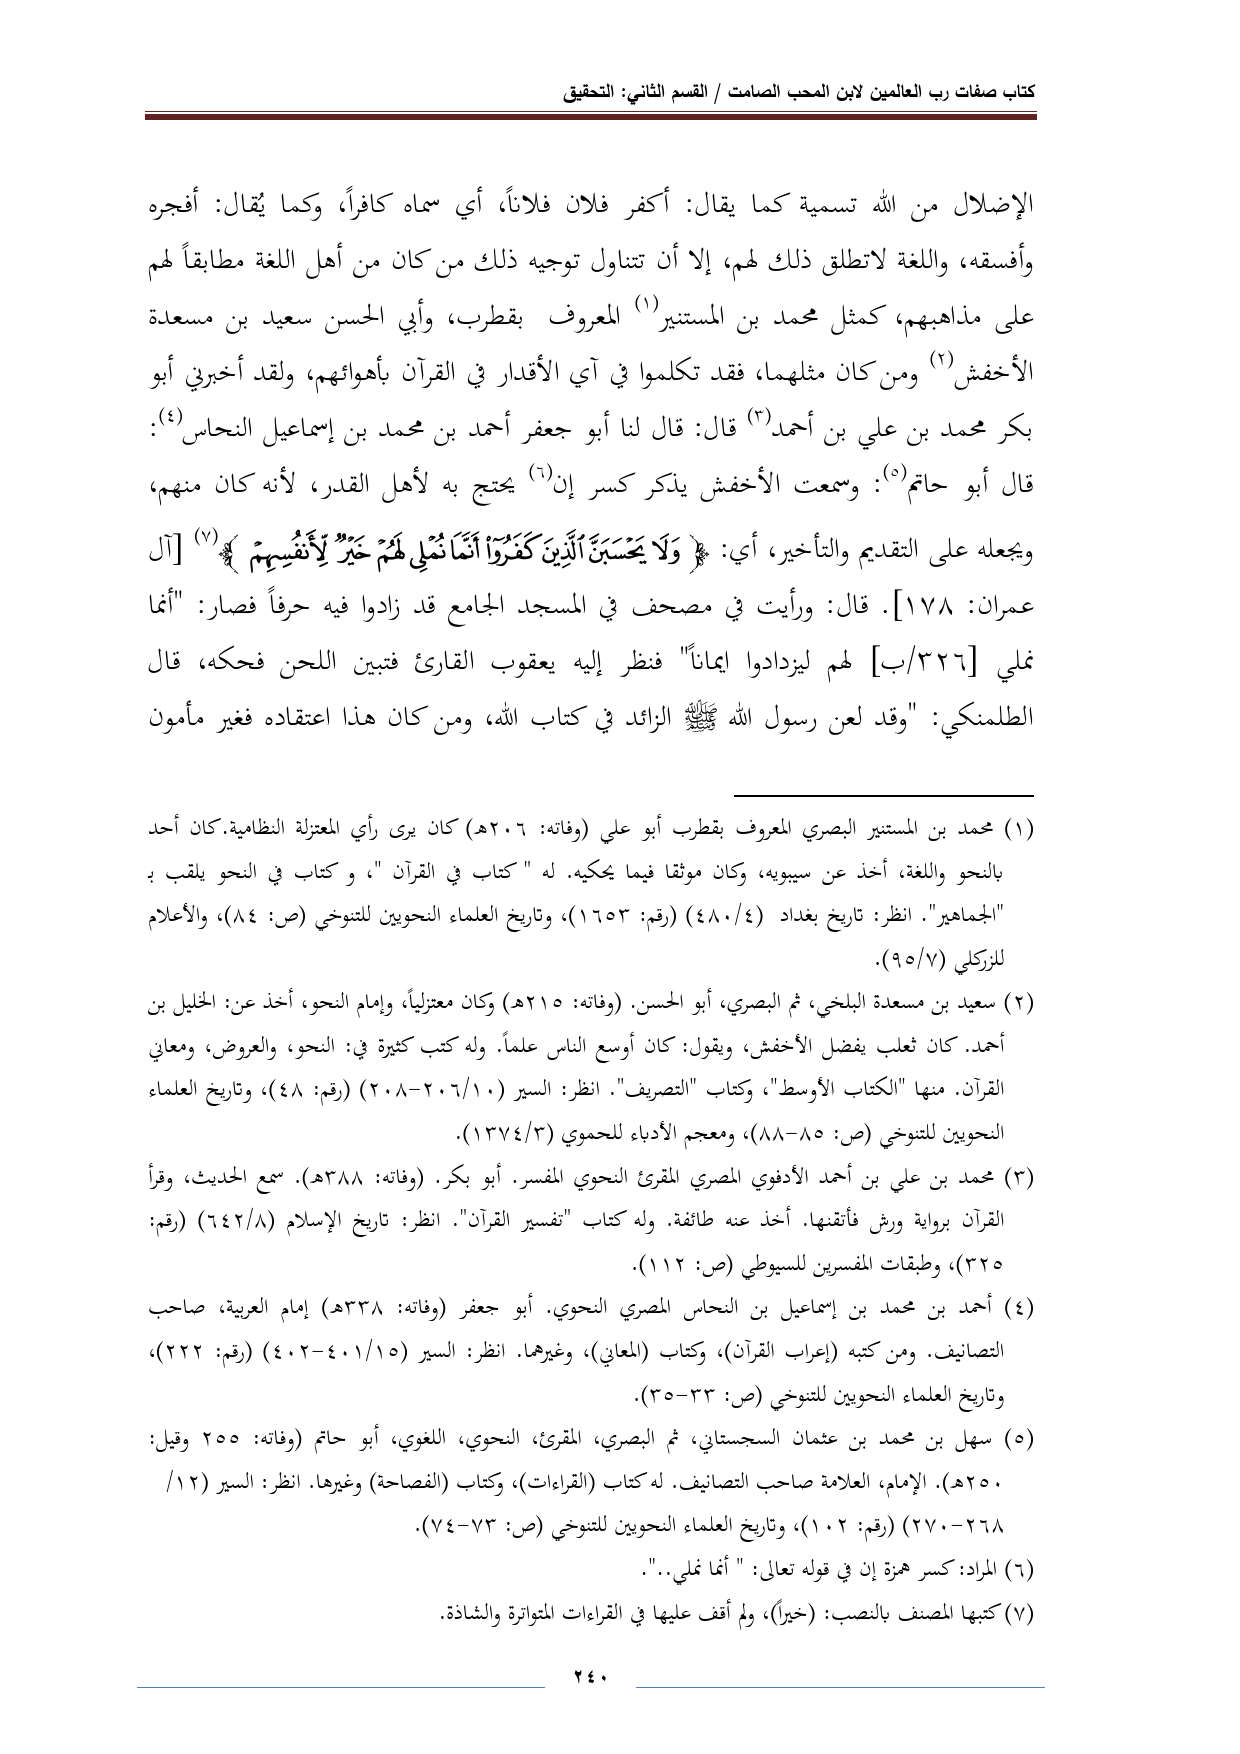 كتاب صفات رب العالمين لابن المحب الصامت / القسم الثاني: التحقيق
الإضلال من الله تسمية كما يقال: أكفر فلان فلاناً، أي سماه كافراً، وكما يُقال: أفجره
وأفسقه، واللغة لاتطلق ذلك لهم، إلا أن تتناول توجيه ذلك من كان من أهل اللغة مطابقاً لهم
على مذاهبهم، كمثل محمد بن المستنير(١) المعروف بقطرب، وأبي الحسن سعيد بن مسعدة
الأخفش(٢) ومن كان مثلهما، فقد تكلموا في آي الأقدار في القرآن بأهوائهم، ولقد أخبرني أبو
بكر محمد بن علي بن أحمد(٣) قال: قال لنا أبو جعفر أحمد بن محمد بن إسماعيل النحاس(٤):
قال أبو حاتم(٥): وسمعت الأخفش يذكر كسر إن(٦) يحتج به لأهل القدر، لأنه كان منهم،
ويجعله على التقديم والتأخير، أي: ﴿ وَلَا يَحْسَبَنَّ ٱلَّذِينَ كَفَرُوٓا۟ أَنَّمَا نُمْلِى لَهُمْ خَيْرٌ لِّأَنفُسِهِمْ ﴾(٧) [آل
عمران: ١٧٨]. قال: ورأيت في مصحف في المسجد الجامع قد زادوا فيه حرفاً فصار: "أنما
نملي [٣٢٦/ب] لهم ليزدادوا ايماناً" فنظر إليه يعقوب القارئ فتبين اللحن فحكه، قال
الطلمنكي: "وقد لعن رسول الله ﷺ الزائد في كتاب الله، ومن كان هذا اعتقاده فغير مأمون
(١) محمد بن المستنير البصري المعروف بقطرب أبو علي (وفاته: ٢٠٦هـ) كان يرى رأي المعتزلة النظامية.كان أحد
بالنحو واللغة، أخذ عن سيبويه، وكان موثقا فيما يحكيه. له " كتاب في القرآن "، و كتاب في النحو يلقب بـ
"الجماهير". انظر: تاريخ بغداد (٤/ ٤٨٠) (رقم: ١٦٥٣)، وتاريخ العلماء النحويين للتنوخي (ص: ٨٤)، والأعلام
للزركلي (٧/ ٩٥).
(٢) سعيد بن مسعدة البلخي، ثم البصري، أبو الحسن. (وفاته: ٢١٥هـ) وكان معتزلياً، وإمام النحو، أخذ عن: الخليل بن
أحمد. كان ثعلب يفضل الأخفش، ويقول: كان أوسع الناس علماً. وله كتب كثيرة في: النحو، والعروض، ومعاني
القرآن. منها "الكتاب الأوسط"، وكتاب "التصريف". انظر: السير (١٠/ ٢٠٦-٢٠٨) (رقم: ٤٨)، وتاريخ العلماء
النحويين للتنوخي (ص: ٨٥-٨٨)، ومعجم الأدباء للحموي (٣/ ١٣٧٤).
(٣) محمد بن علي بن أحمد الأدفوي المصري المقرئ النحوي المفسر. أبو بكر. (وفاته: ٣٨٨هـ). سمع الحديث، وقرأ
القرآن برواية ورش فأتقنها. أخذ عنه طائفة. وله كتاب "تفسير القرآن". انظر: تاريخ الإسلام (٨/ ٦٤٢) (رقم:
٣٢٥)، وطبقات المفسرين للسيوطي (ص: ١١٢).
(٤) أحمد بن محمد بن إسماعيل بن النحاس المصري النحوي. أبو جعفر (وفاته: ٣٣٨هـ) إمام العربية، صاحب
التصانيف. ومن كتبه (إعراب القرآن)، وكتاب (المعاني)، وغيرهما. انظر: السير (١٥/ ٤٠١-٤٠٢) (رقم: ٢٢٢)،
وتاريخ العلماء النحويين للتنوخي (ص: ٣٣-٣٥).
(٥) سهل بن محمد بن عثمان السجستاني، ثم البصري، المقرئ، النحوي، اللغوي، أبو حاتم (وفاته: ٢٥٥ وقيل:
٢٥٠هـ). الإمام، العلامة صاحب التصانيف. له كتاب (القراءات)، وكتاب (الفصاحة) وغيرها. انظر: السير (١٢/
٢٦٨-٢٧٠) (رقم: ١٠٢)، وتاريخ العلماء النحويين للتنوخي (ص: ٧٣-٧٤).
(٦) المراد: كسر همزة إن في قوله تعالى: " أنما نملي..".
(٧) كتبها المصنف بالنصب: (خيراً)، ولم أقف عليها في القراءات المتواترة والشاذة.
٢٤٠